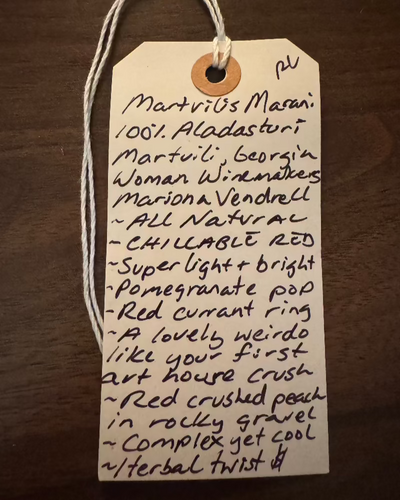 RV
Martvilis Marani
100% Aladasturi
Martvili, Georgia
Woman Winemakers
Mariona Vendrell
~ALL NATURAL
~CHILLABLE RED
~Super light + bright
~Pomegranate pop
~Red currant ring
~A lovely weirdo
like your first
art house crush
~Red crushed peach
in rocky gravel
~Complex yet cool
~Herbal twist